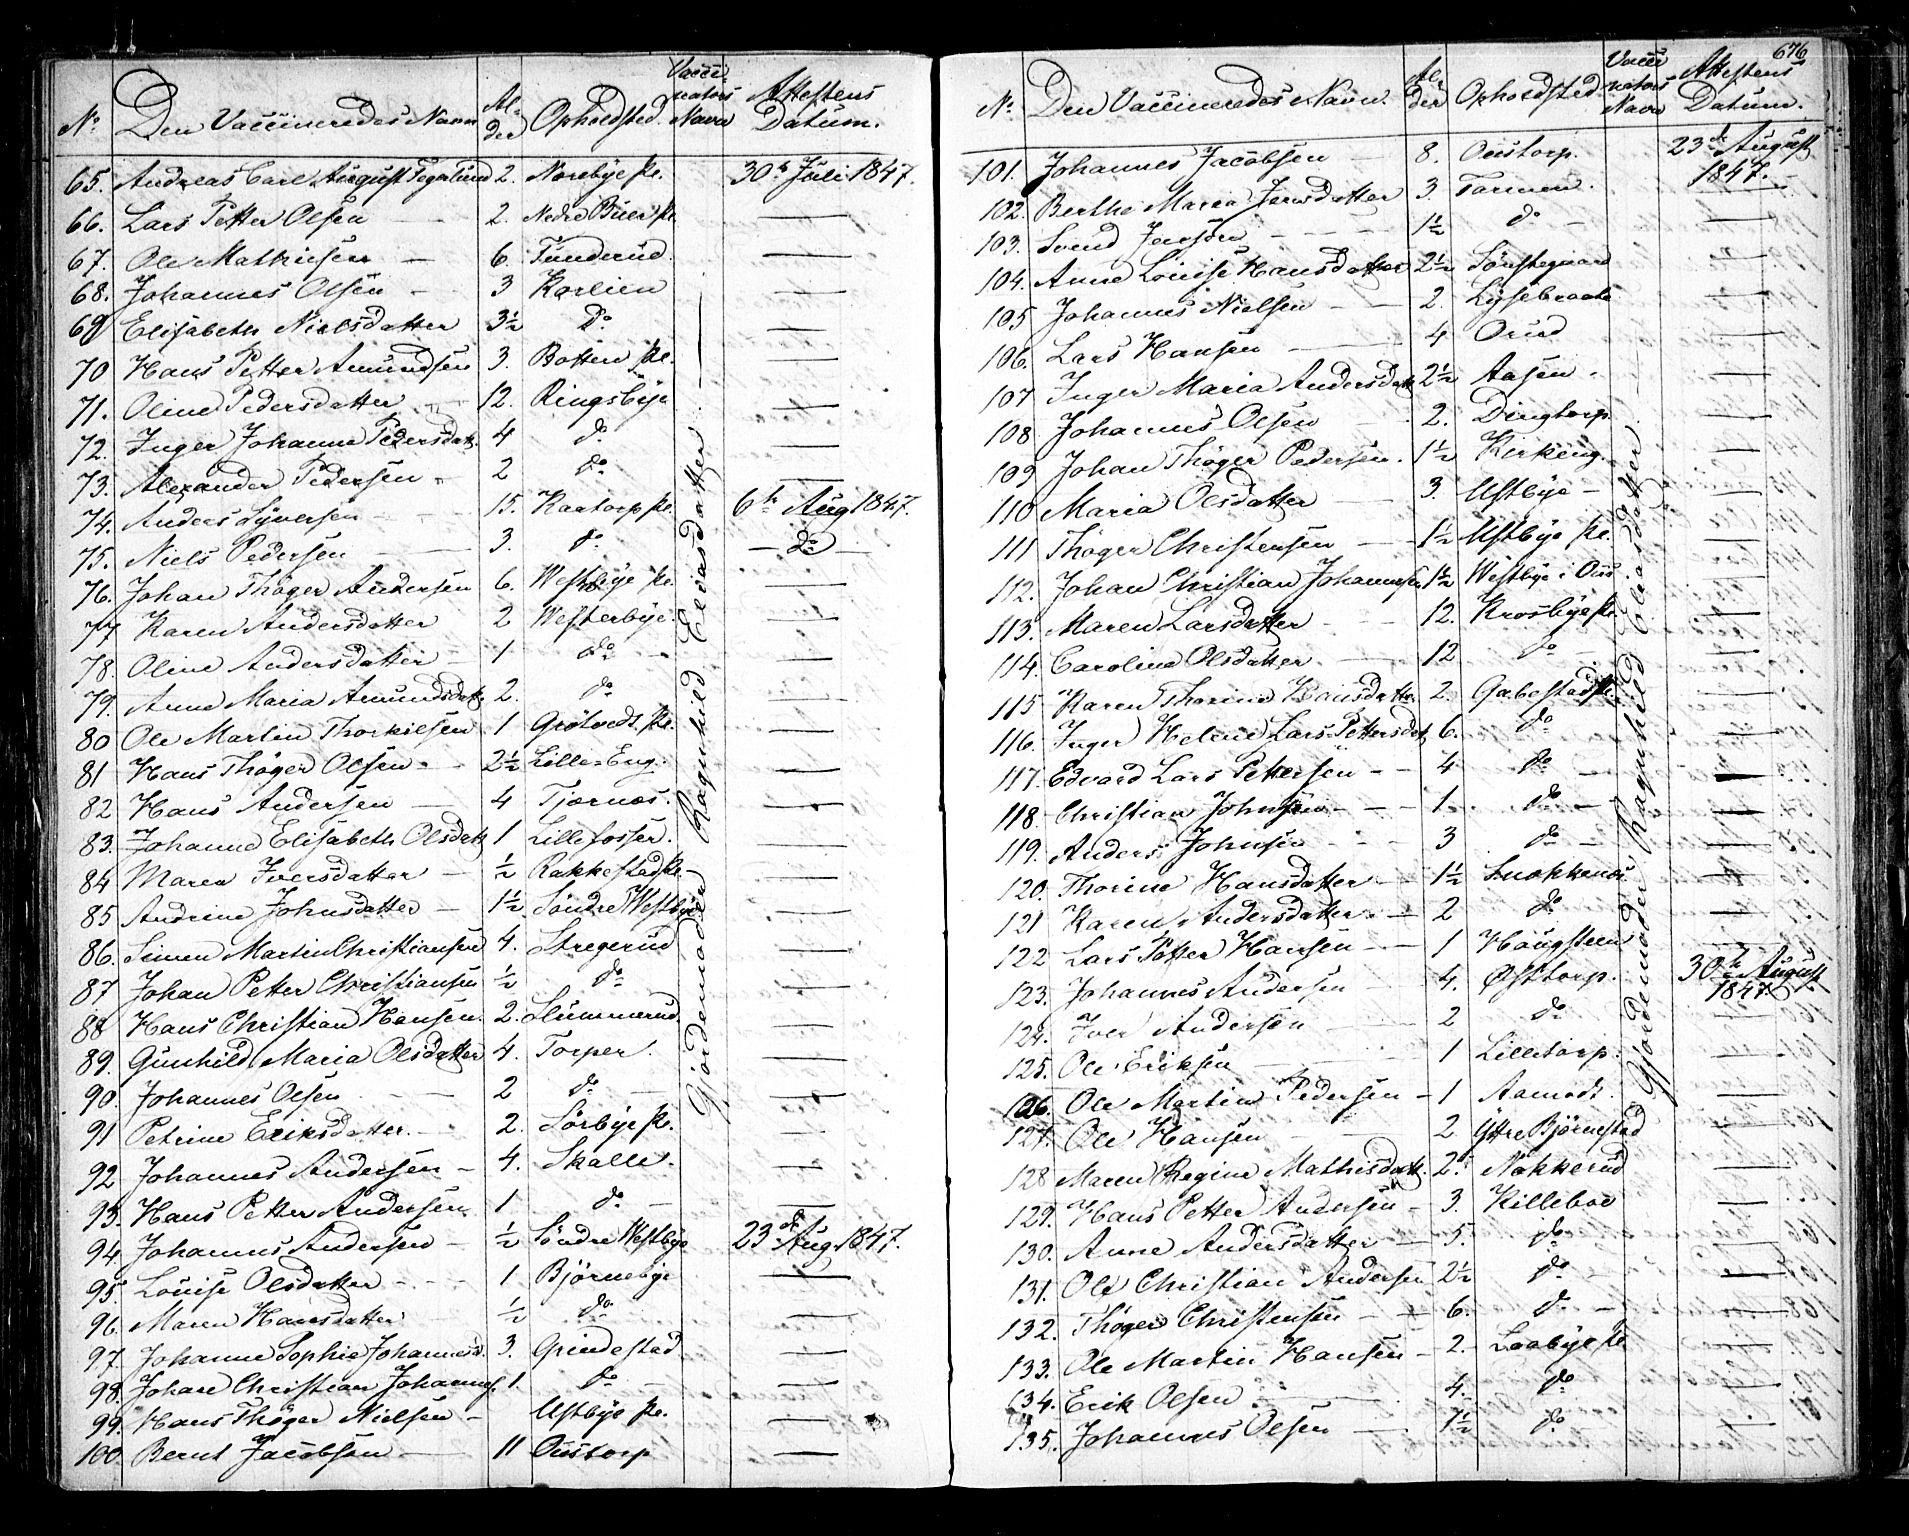 676
No. Den Vaccineredes Navn Alder Opholdsted. Vaccinators Navn Attestens Datum.
65. Andreas Carl August Fegelund 2. Norebye pl. 30th Juli 1847.
66. Lars Petter Olsen 2. Nedre Buer pl. —
67. Ole Mathiesen — 6. Tunderud. —
68. Johannes Olsen - 3 Karlien —
69 Elisabeth Nielsdatter 3½ Do. —
70 Hans Petter Amundsen 3. Botten pl. —
71. Oline Pedersdatter 12. Ringsbye —
72. Inger Johanne Pedersdatt. 4 do. —
73. Alexander Pedersen - 2 do. —
74. Anders Syversen 15. Kaatorp pl. 6th Aug 1847.
75. Niels Pedersen — 3. do. — do —
76. Johan Thøger Andersen 6. Westbye pl. —
77 Karen Andersdatter 2 Westerbye. —
78. Oline Andersdatter — 1 do. —
79. Anne Maria Amundsdatt. 2. do. —
80 Ole Martin Thorkilsen 1 Grötvedt pl. —
81 Hans Thøger Olsen - 2½ Lille-Eng. —
82 Hans Andersen — 4 Tjærnæs. —
83. Johanne Elisabeth Olsdatt 1 Lillefosser. —
84 Maren Iversdatter — ½ Rakkestad pl. —
85 Andrine Johnsdatter — 1½ Söndre Westbye —
86. Simen Martin Christiansen 4. Stregerud —
87 Johan Petter Christiansen ½ do. —
88 Hans Christian Hansen. 2. Slummerud. —
89. Gunhild Maria Olsdatter 4. Torper. —
90. Johannes Olsen 2 do. —
91 Petrine Eriksdatter. 2. Sörbye pl. —
92 Johannes Andersen — 4. Skalle. —
93. Hans Petter Andersen 1 do. —
94. Johannes Andersen — ½ Söndre Westbye 23de Aug. 1847.
95. Louise Olsdatter - 1 Björnebye —
96. Maren Hansdatter ½ do. —
97. Johanne Sophie Johannesd. 3. Grindestad —
98. Johan Christian Johannes. 1. do. —
99. Hans Thöger Nielsen — Ustbye pl. —
100. Bernt Jacobsen — 11 Oustorp —
Gjordemoder Ragnhild Eliasdatter
No. Den Vaccineredes Navn. Alder Opholdsted Vaccinators Navn Attestens Datum.
101. Johannes Jacobsen 8. Oustorp. 23de August 1847.
102. Berthe Maria Jensdatter 3. Tormen. —
103. Svend Jensen 1½ do. —
104. Anne Louise Hansdatter 2½ Sönstegaard —
105 Johannes Nielsen — 2. Lysebraate —
106. Lars Hansen 4 Orud —
107 Inger Maria Andersdatt 2½ Aasen. —
108 Johannes Olsen 2. Dingtorp. —
109 Johan Thöger Pedersen. 1½ Kirkeng. —
110 Maria Olsdatter 3. Ustbye — —
111 Thöger Christensen — 1½ Ustbye pl. —
112. Johan Christian Johannesen 1½ Westbye i Ous —
113. Maren Larsdatter 12. Krosbye pl. —
114. Caroline Olsdatter 12 do. —
115 Karen Thorine Hansdatter 2. Gabestad pl. —
116. Inger Helene Lars Pettersdat 6. do —
117. Edvard Lars Pettersen - 4 do. —
118. Christian Johnsen — 1. do —
119. Anders Johnsen 3 do —
120. Thorine Hansdatter — 1½ Snokkenes —
121 Karen Andersdatter. — 2 do. —
122 Lars Petter Hansen — 1 Haugsteen —
123. Johannes Andersen 4. Østtorp. 30th August 1847.
124. Iver Andersen 2 do —
125. Ole Eriksen 1 Lilletorp. —
126. Ole Martin Pedersen — 1 Aamodt. —
127. Ole Hansen 2. Yttre Björnestad —
128 Maren Regine Mathisdatt. 2. Nakkerud —
129. Hans Petter Andersen — 3. Killeboe —
130. Anne Andersdatter — 5. do. —
131. Ole Christian Andersen 2½ do —
132. Thöger Christensen — 6. do. —
133. Ole Martin Hansen — 2. Laabye pl —
134. Erik Olsen 4. do —
135. Johannes Olsen — 1½ do —
Gjordemoder Ragnhild Eliasdatter